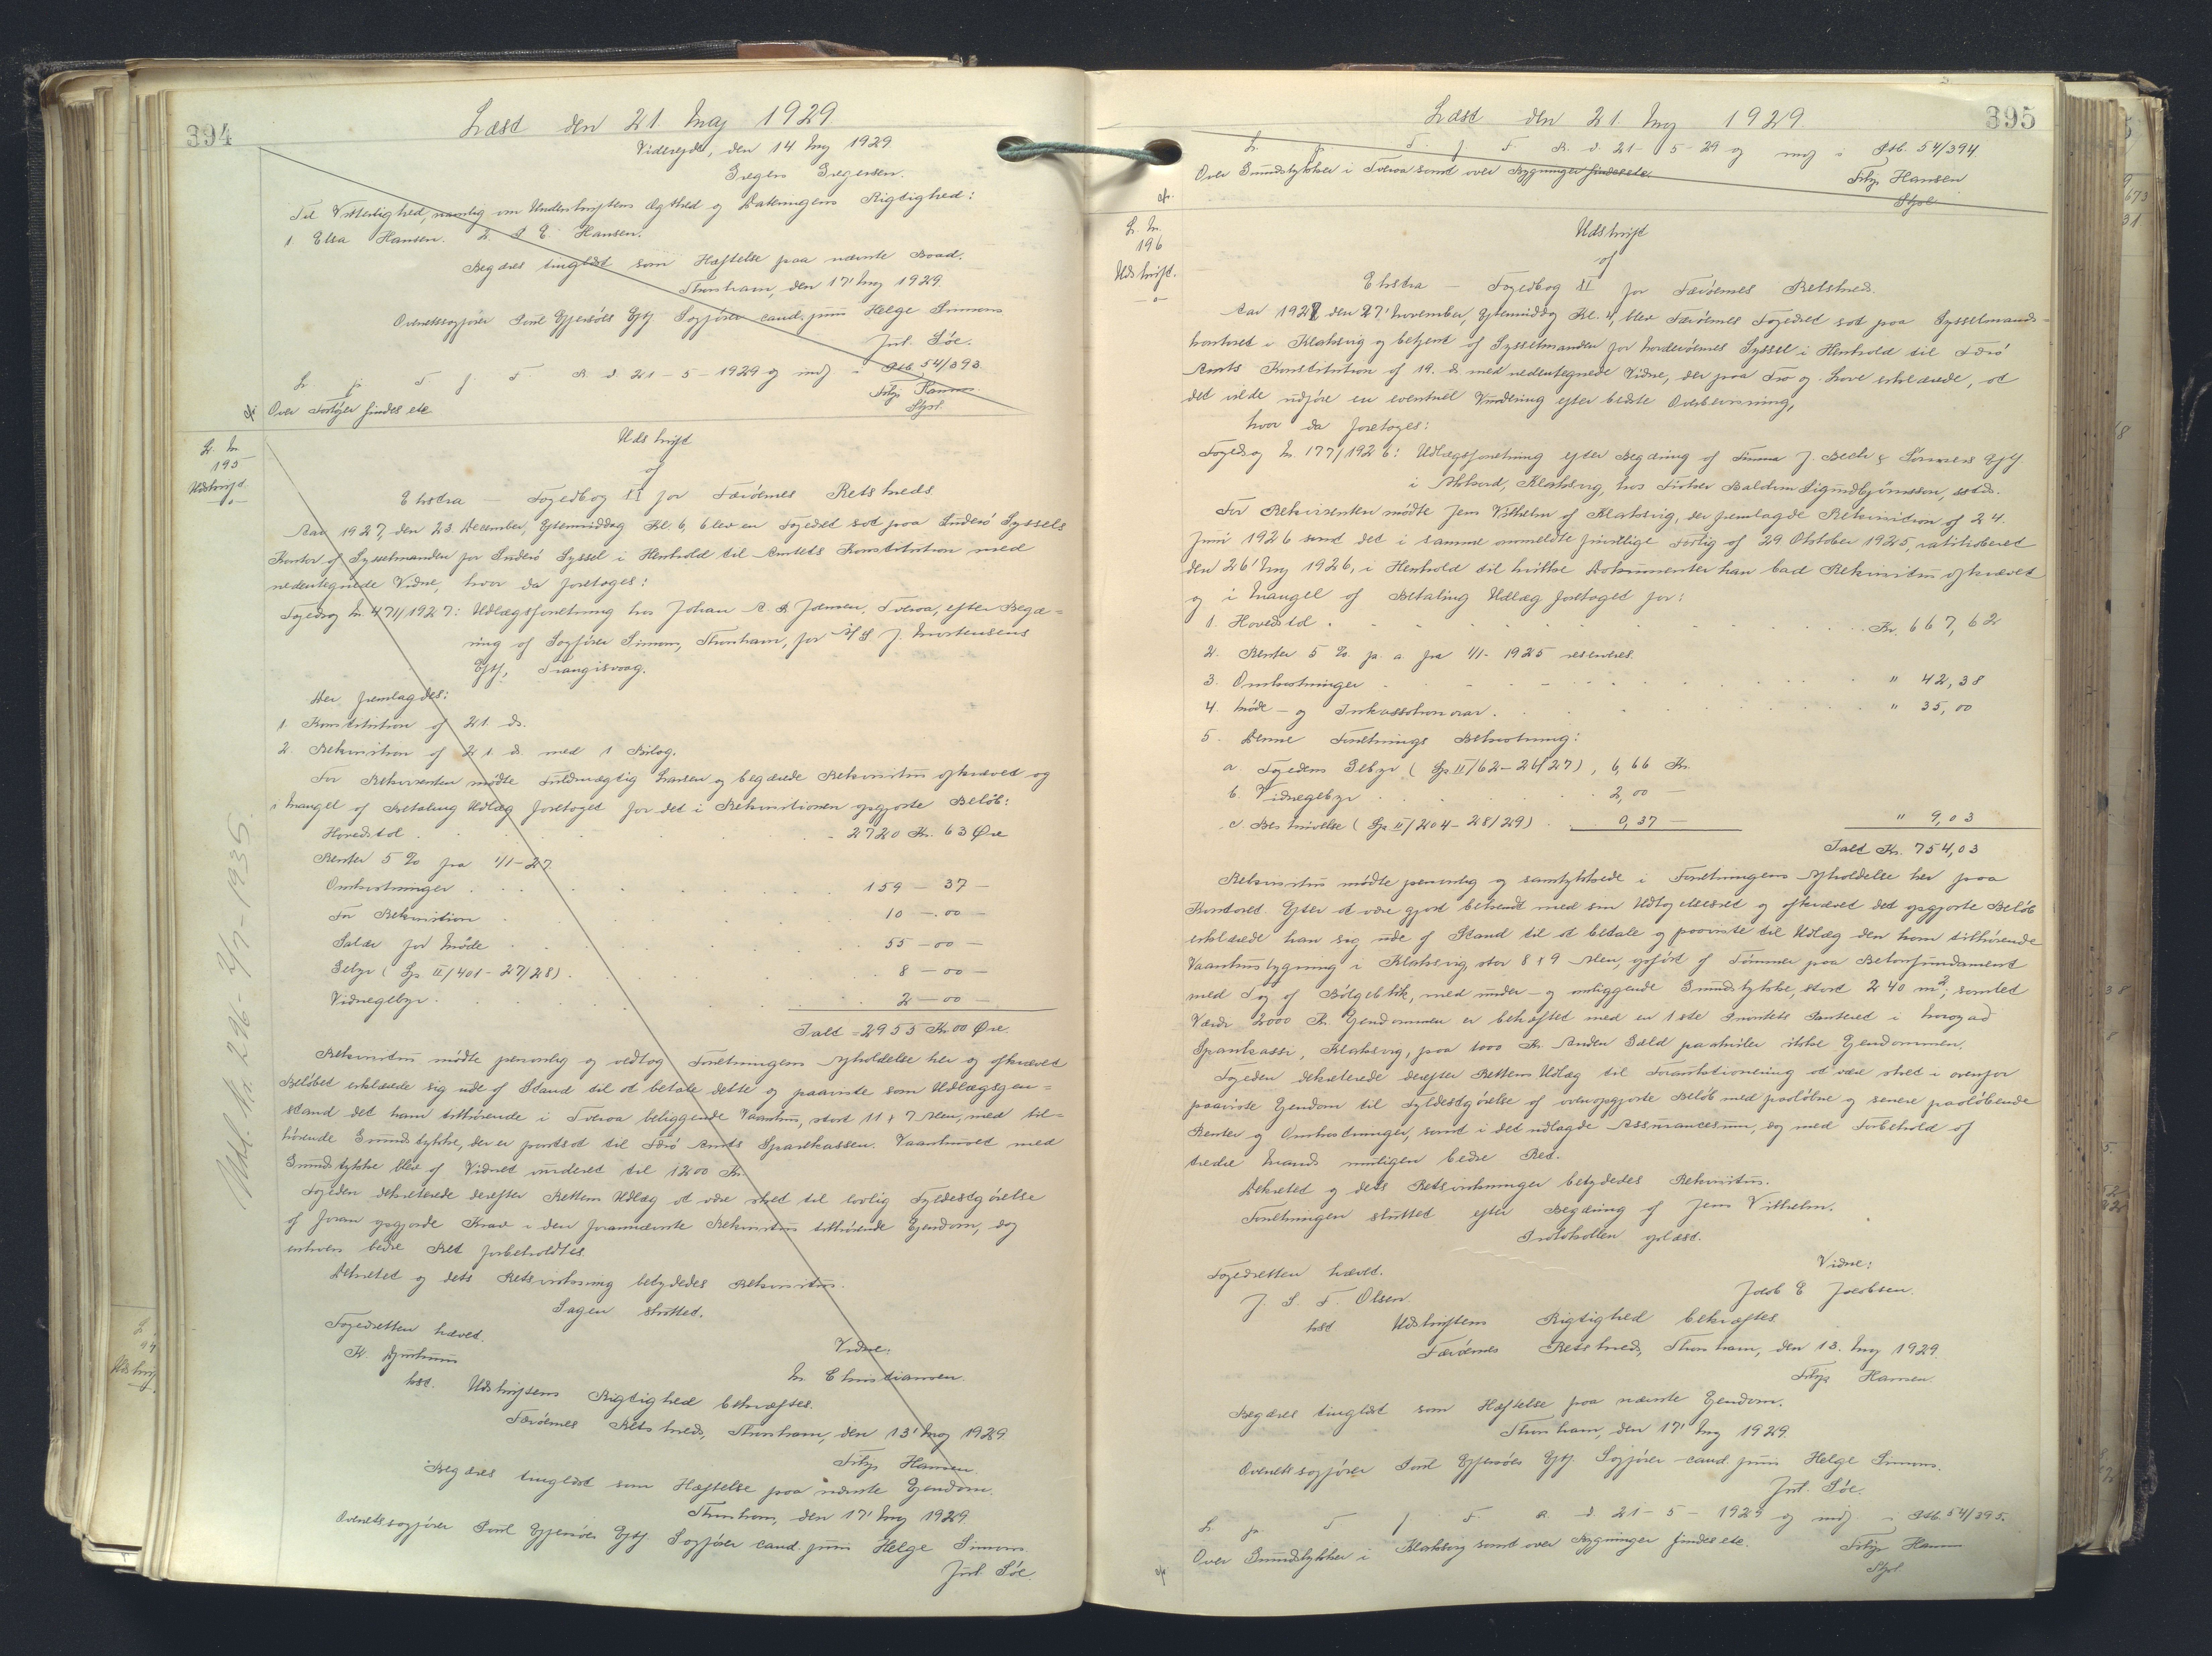 394
Læst den 21. Maj 1929
Videsejde, den 14 Maj 1929
Gregers Gregersen.
Til Vitterlighed, namlig om Underskriftens Ægthed og Dateringens Rigtighed:
1 Elsa Hansen. 2. P E. Hansen.
Begæres tinglæst som Hæftelse paa nævnte Baad.
Thorshavn, den 17' Maj 1929.
Overretssagfører Poul Effersöes Eftf. Sagfører cand. juris Helge Simons
Joh. Söe.
L. p. T. f. F. R. d. 21-5-1929 og indf i Ptb. 54/393
Filip Hansen
Over Fartöjer findes ete
Stpol.
L. Nr.
195
Udskrift.
Udskrift
af
Ekstra - Fogedbog II for Færöernes Retskreds.
Aar 1927, den 23 December, Eftermiddag Kl. 6, blev en Fogedret sat paa Suderö Syssels
Kontor af Sysselmanden for Suderö Syssel i Henhold til Amtets Konstitution med
nedentegnede Vidne, hvor da foretoges:
Fogedsag Nr. 471/1927: Udlægsforretning hos Johan A. D. Jensen, Tveraa, efter Begæ=
ring af Sagfører Simons, Thorshavn, for A/S J. Mortensens
Eftf, Trangisvaag.
Her fremlagdes:
1. Konstitution af 21. ds.
2. Rekvisition af 21. ds. med 1 Bilag.
For Rekvirenten mödte Fuldmægtig Larsen og begærede Rekvisitus afkrævet og
i Mangel af Betaling Udlæg foretaget for det i Rekvisitionen opgjorte Belöb:
Hovedstol . . . 2720 Kr. 63 Øre
Renter 5 % fra 1/1-27
Omkostninger . . . 159 - 37 -
For Rekvisition . . . 10 - 00 -
Salær for Möde . . . 55 - 00 -
Gebyr (Sp II/401 - 27/28) . . . 8 - 00 -
Vidnegebyr . . . 2 - 00 -
Ialt = 2955 Kr 00 Øre.
Rekvisitus mödte personlig og vedtog Forretningens Afholdelse her og afkrævet
Belöbet erklærede sig ude af Stand til at betale dette og paaviste som Udlægsgen=
stand det ham tilhörende i Tveraa beliggende Vaanhus, stort 11 x 7 Alen, med til=
hörende Grundstykke, der er pantsat til Færö Amts Sparekasse. Vaanhuset med
Grundstykke blev af Vidnet vurderet til 1200 Kr.
Fogeden dekreterede derefter Rettens Udlæg at være sket til lovlig Fyldestgörelse
af foran opgjorte Krav i den forannævnte Rekvisitus tilhörende Ejendom, dog
enhvers bedre Ret forbeholdtes.
Dekretet og dets Retsvirkning betydedes Rekvisitus.
Sagen sluttet.
Fogedretten hævet.
K. Djurhuus
Vidne:
M. Christiansen.
kst.
Udskriftens Rigtighed bekræftes.
Færöernes Retskreds, Thorshavn, den 13' Maj 1929.
Filip Hansen
Begæres tinglæst som Hæftelse paa nævnte Ejendom.
Thorshavn, den 17' Maj 1929
Overretssagfører Poul Effersöes Eftf Sagfører cand. juris Helge Simons.
Joh. Söe.
Udsl. Nr. 296 - 2/7 - 1935.
395
Læst den 21 Maj 1929
L. p. T. f. F. R. d. 21-5-29 og indf i Ptb. 54/394.
Over Grundstykker i Tveraa samt over Bygninger findes ete.
Filip Hansen
Stpol.
L. Nr.
196
Udskrift.
Udskrift
af
Ekstra - Fogedbog II for Færöernes Retskreds.
Aar 1928 den 27' November, Eftermiddag Kl. 4, blev Færöernes Fogedret sat paa Sysselmands=
kontoret i Klaksvig og betjent af Sysselmanden for Norderöernes Syssel i Henhold til Færö
Amts Konstitution af 19. ds med nedentegnede Vidne, der paa Tro og Love erklærede, at
det vilde udföre en eventuel Vurdering efter bedste Overbevisning,
hvor da foretoges:
Fogedsag Nr. 177/1926: Udlægsforretning efter Begæring af Firma J. Bech & Sönners Eftf
i Akkord, Klaksvig, hos Fisker Baldvin Sigmdbjörnsson, sstds.
For Rekvirenten mödte Jens Vilhelm af Klaksvig, der fremlagde Rekvisition af 24.
Juni 1926 samt det i samme ommeldte frivillige Forlig af 29 Oktober 1925, ratihaberet
den 26' Maj 1926, i Henhold til hvilke Dokumenter han bad Rekvisitus afkrævet
og i Mangel af Betaling Udlæg foretaget for:
1. Hovedstol . . . Kr. 667,62
2. Renter 5 % p. a. fra 1/1- 1925 reserveres.
3. Omkostninger . . . " 42,38
4. Möde - og Inkassationssalær . . . " 35,00
5. Denne Forretnings Bekostning:
a. Fogedens Gebyr (Sp II/62-26/27), 6,66 Kr.
b. Vidnegebyr . . . 2,00 -
c Beskrivelse (Sp II/204-28/29) . . 0,37 - " 9,03
Ialt Kr. 754,03
Rekvisitus mödte personlig og samtykkede i Forretningens Afholdelse her paa
Kontoret. Efter at være gjort bekendt med sin Udtagelsesret og afkrævet det opgjorte Belöb
erklærede han sig ude af Stand til at betale og paaviste til Udlæg den ham tilhörende
Vaanhusbygning i Klaksvig, stor 8 x 9 Alen, opfört af Tömmer paa Betonfundament
med Tag af Bölgeblik, med under- og omliggende Grundstykke, stort 240 m²; samlet
Værdi 2000 Kr. Ejendommen er behæftet med en 1ste Prioritets Panteret i Norøyad
Sparikassi, Klaksvig, paa 1000 Kr. Anden Gæld paahviler ikke Ejendommen.
Fogeden dekreterede derefter Rettens Udlæg til Foranstationering at være sket i ovenfor
paaviste Ejendom til Fyldestgörelse af ovenopgjorte Belöb med paalöbne og senere paalöbende
Renter og Omkostninger, samt i det udlagde Assurancesum, dog med Forbehold af
tredie Mands muligen bedre Ret.
Dekretet og dets Retsvirkninger betydedes Rekvisitus.
Forretningen sluttet efter Begæring af Jens Vilhelm.
Protokollen oplæst.
Fogedretten hævet.
Vidne:
J. S. F. Olsen.
Jacob E Jacobsen.
kst
Udskriftens Rigtighed bekræftes
Færöernes Retskreds, Thorshavn, den 13. Maj 1929.
Filip Hansen.
Begæres tinglæst som Hæftelse paa nævnte Ejendom.
Thorshavn, den 17' Maj 1929.
Overretssagfører Poul Effersöes Eftf. Sagfører cand. juris Helge Simons.
Joh. Söe.
L. p. T. f. F. R. d 21-5-1929 og indf. i Ptb 54/395.
Over Grundstykker i Klaksvig samt over Bygninger findes ete.
Filip Hansen
Stpol.